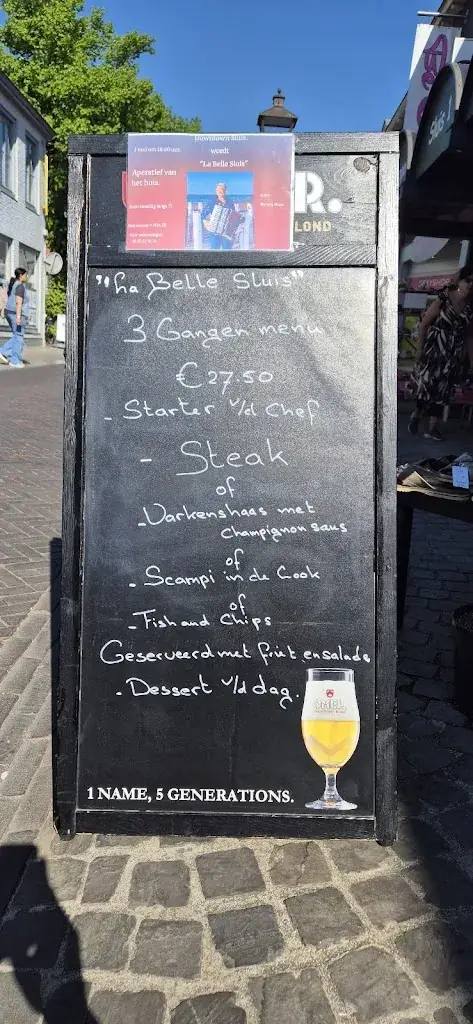 Downtown Sluis.
wordt
"La Belle Sluis"
Aperatief van
het huis.
R.
LOND
"La Belle Sluis"
3 Gangen menu
€27.50
- Starter v/d Chef
- Steak
of
- Varkenshaas met
champignon saus
of
- Scampi in de Look
of
- Fish and Chips
Geserveerd met friet en salade
- Dessert v/d dag.
OMER.
1 NAME, 5 GENERATIONS.